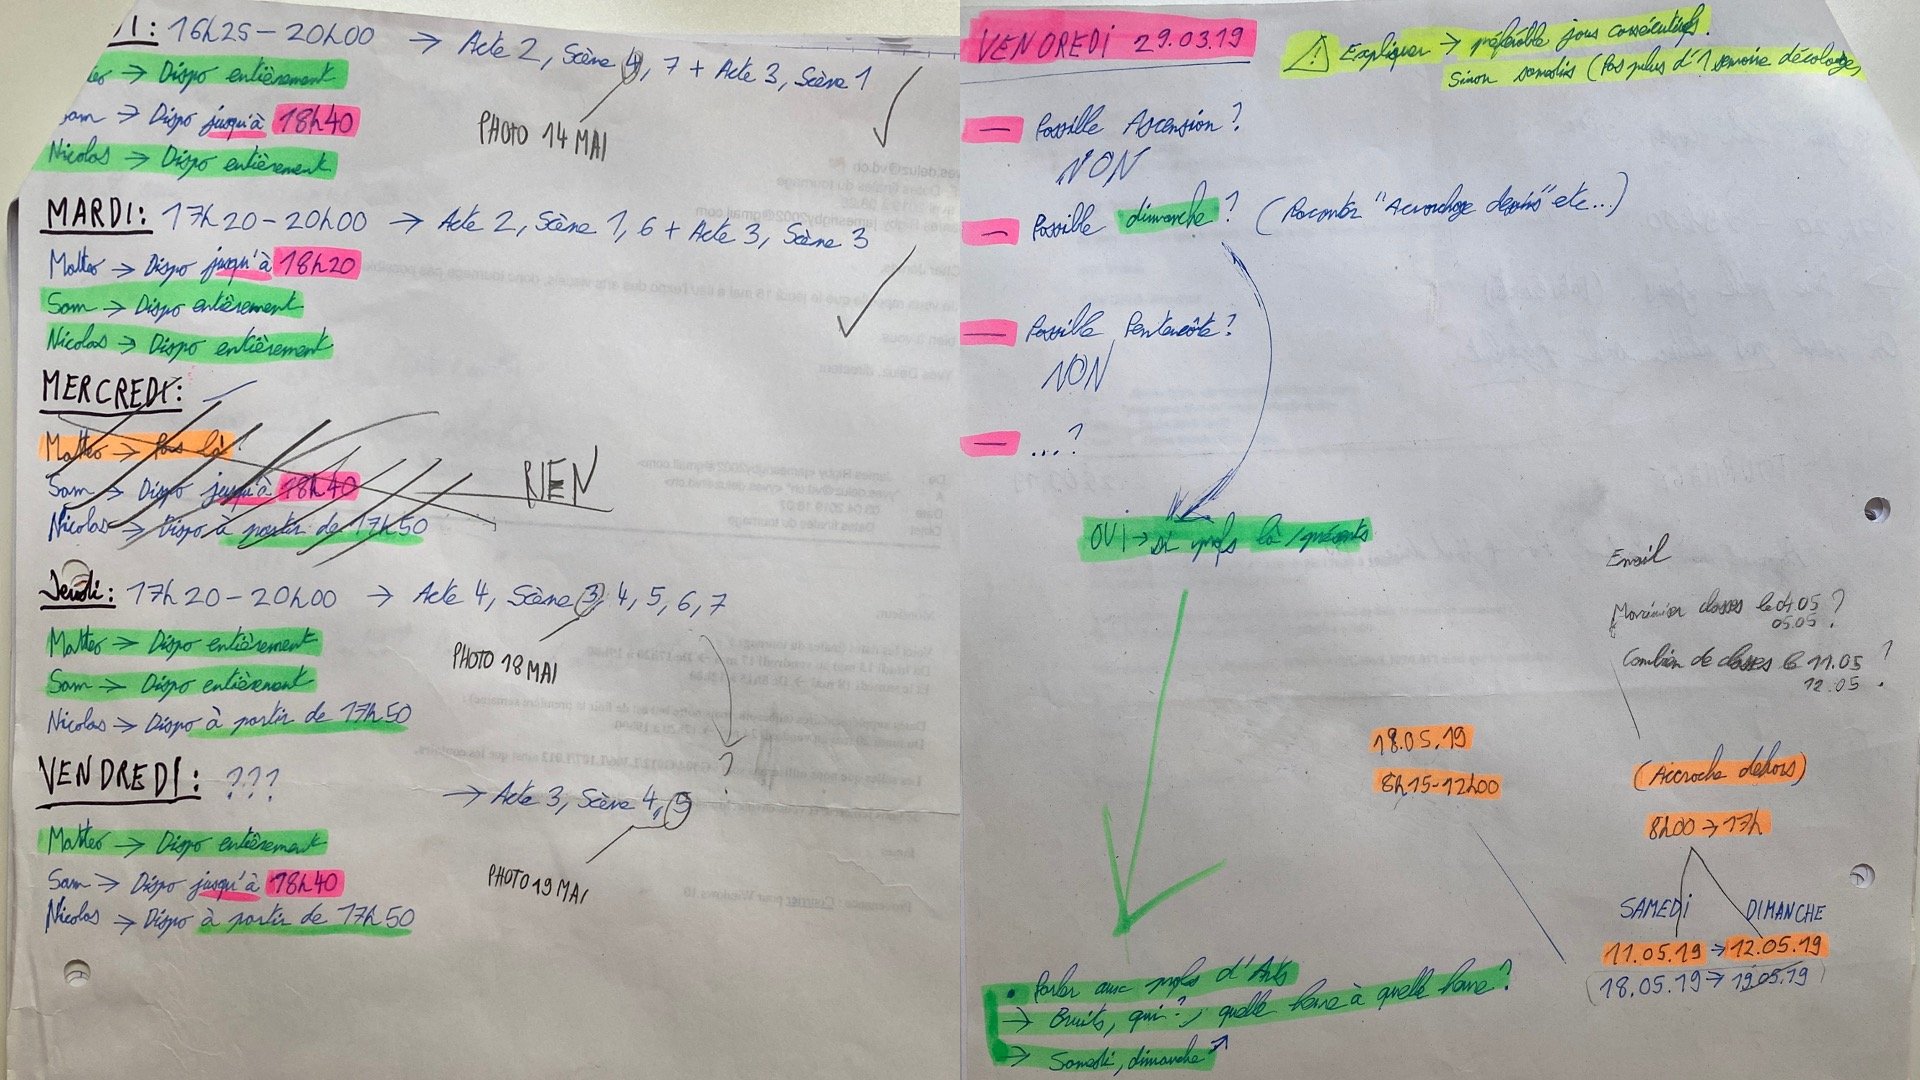 DI: 16h25-20h00 → Acte 2, Scène 4, 7 + Acte 3, Scène 1
teo → Dispo entièrement
Sam → Dispo jusqu'à 18h40
PHOTO 14 MAI
Nicolas → Dispo entièrement
MARDI: 17h20-20h00 → Acte 2, Scène 1, 6 + Acte 3, Scène 3
Matteo → Dispo jusqu'à 18h20
Sam → Dispo entièrement
Nicolas → Dispo entièrement
MERCREDI:
Matteo → Pas là!
Sam → Dispo jusqu'à 18h40
RIEN
Nicolas → Dispo à partir de 17h50
Jeudi: 17h20-20h00 → Acte 4, Scène 3, 4, 5, 6, 7
Matteo → Dispo entièrement
PHOTO 18 MAI
Sam → Dispo entièrement
Nicolas → Dispo à partir de 17h50
?
VENDREDI: ??? → Acte 3, Scène 4, 5
Matteo → Dispo entièrement
Sam → Dispo jusqu'à 18h40
PHOTO 19 MAI
Nicolas → Dispo à partir de 17h50
VENDREDI 29.03.19
Expliquer → préférable jours consécutifs.
Sinon samedis (Pas plus d'1 semaine décalage)
— Possible Ascension?
NON
— Possible dimanche? (Raconter "Accrochage dehors" etc...)
— Possible Pentecôte?
NON
— ...?
OUI → si profs là/présents
Email
classes le 04.05 ?
05.05
Combien de classes le 11.05 ?
12.05
18.05.19
8h15-12h00
(Accroche dehors)
8h00 → 17h
SAMEDI DIMANCHE
11.05.19 → 12.05.19
(18.05.19 → 19.05.19)
• Parler aux profs d'Arts
→ Bruits, qui?, quelle heure à quelle heure?
→ Samedi, dimanche